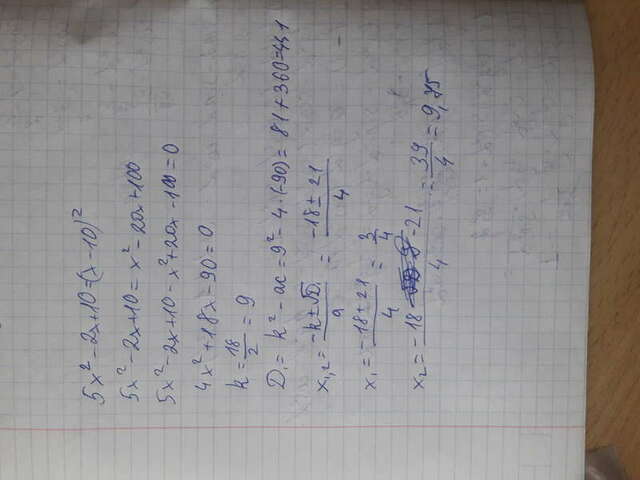 5x² - 2x + 10 = (x - 10)²
5x² - 2x + 10 = x² - 20x + 100
5x² - 2x + 10 - x² + 20x - 100 = 0
4x² + 18x - 90 = 0
k = 18/2 = 9
D₁ = k² - ac = 9² - 4 · (-90) = 81 + 360 = 441
x₁,₂ = (-k ± √D₁)/a = (-18 ± 21)/4
x₁ = (-18 + 21)/4 = 3/4
x₂ = (-18 - 21)/4 = 39/4 = 9,75